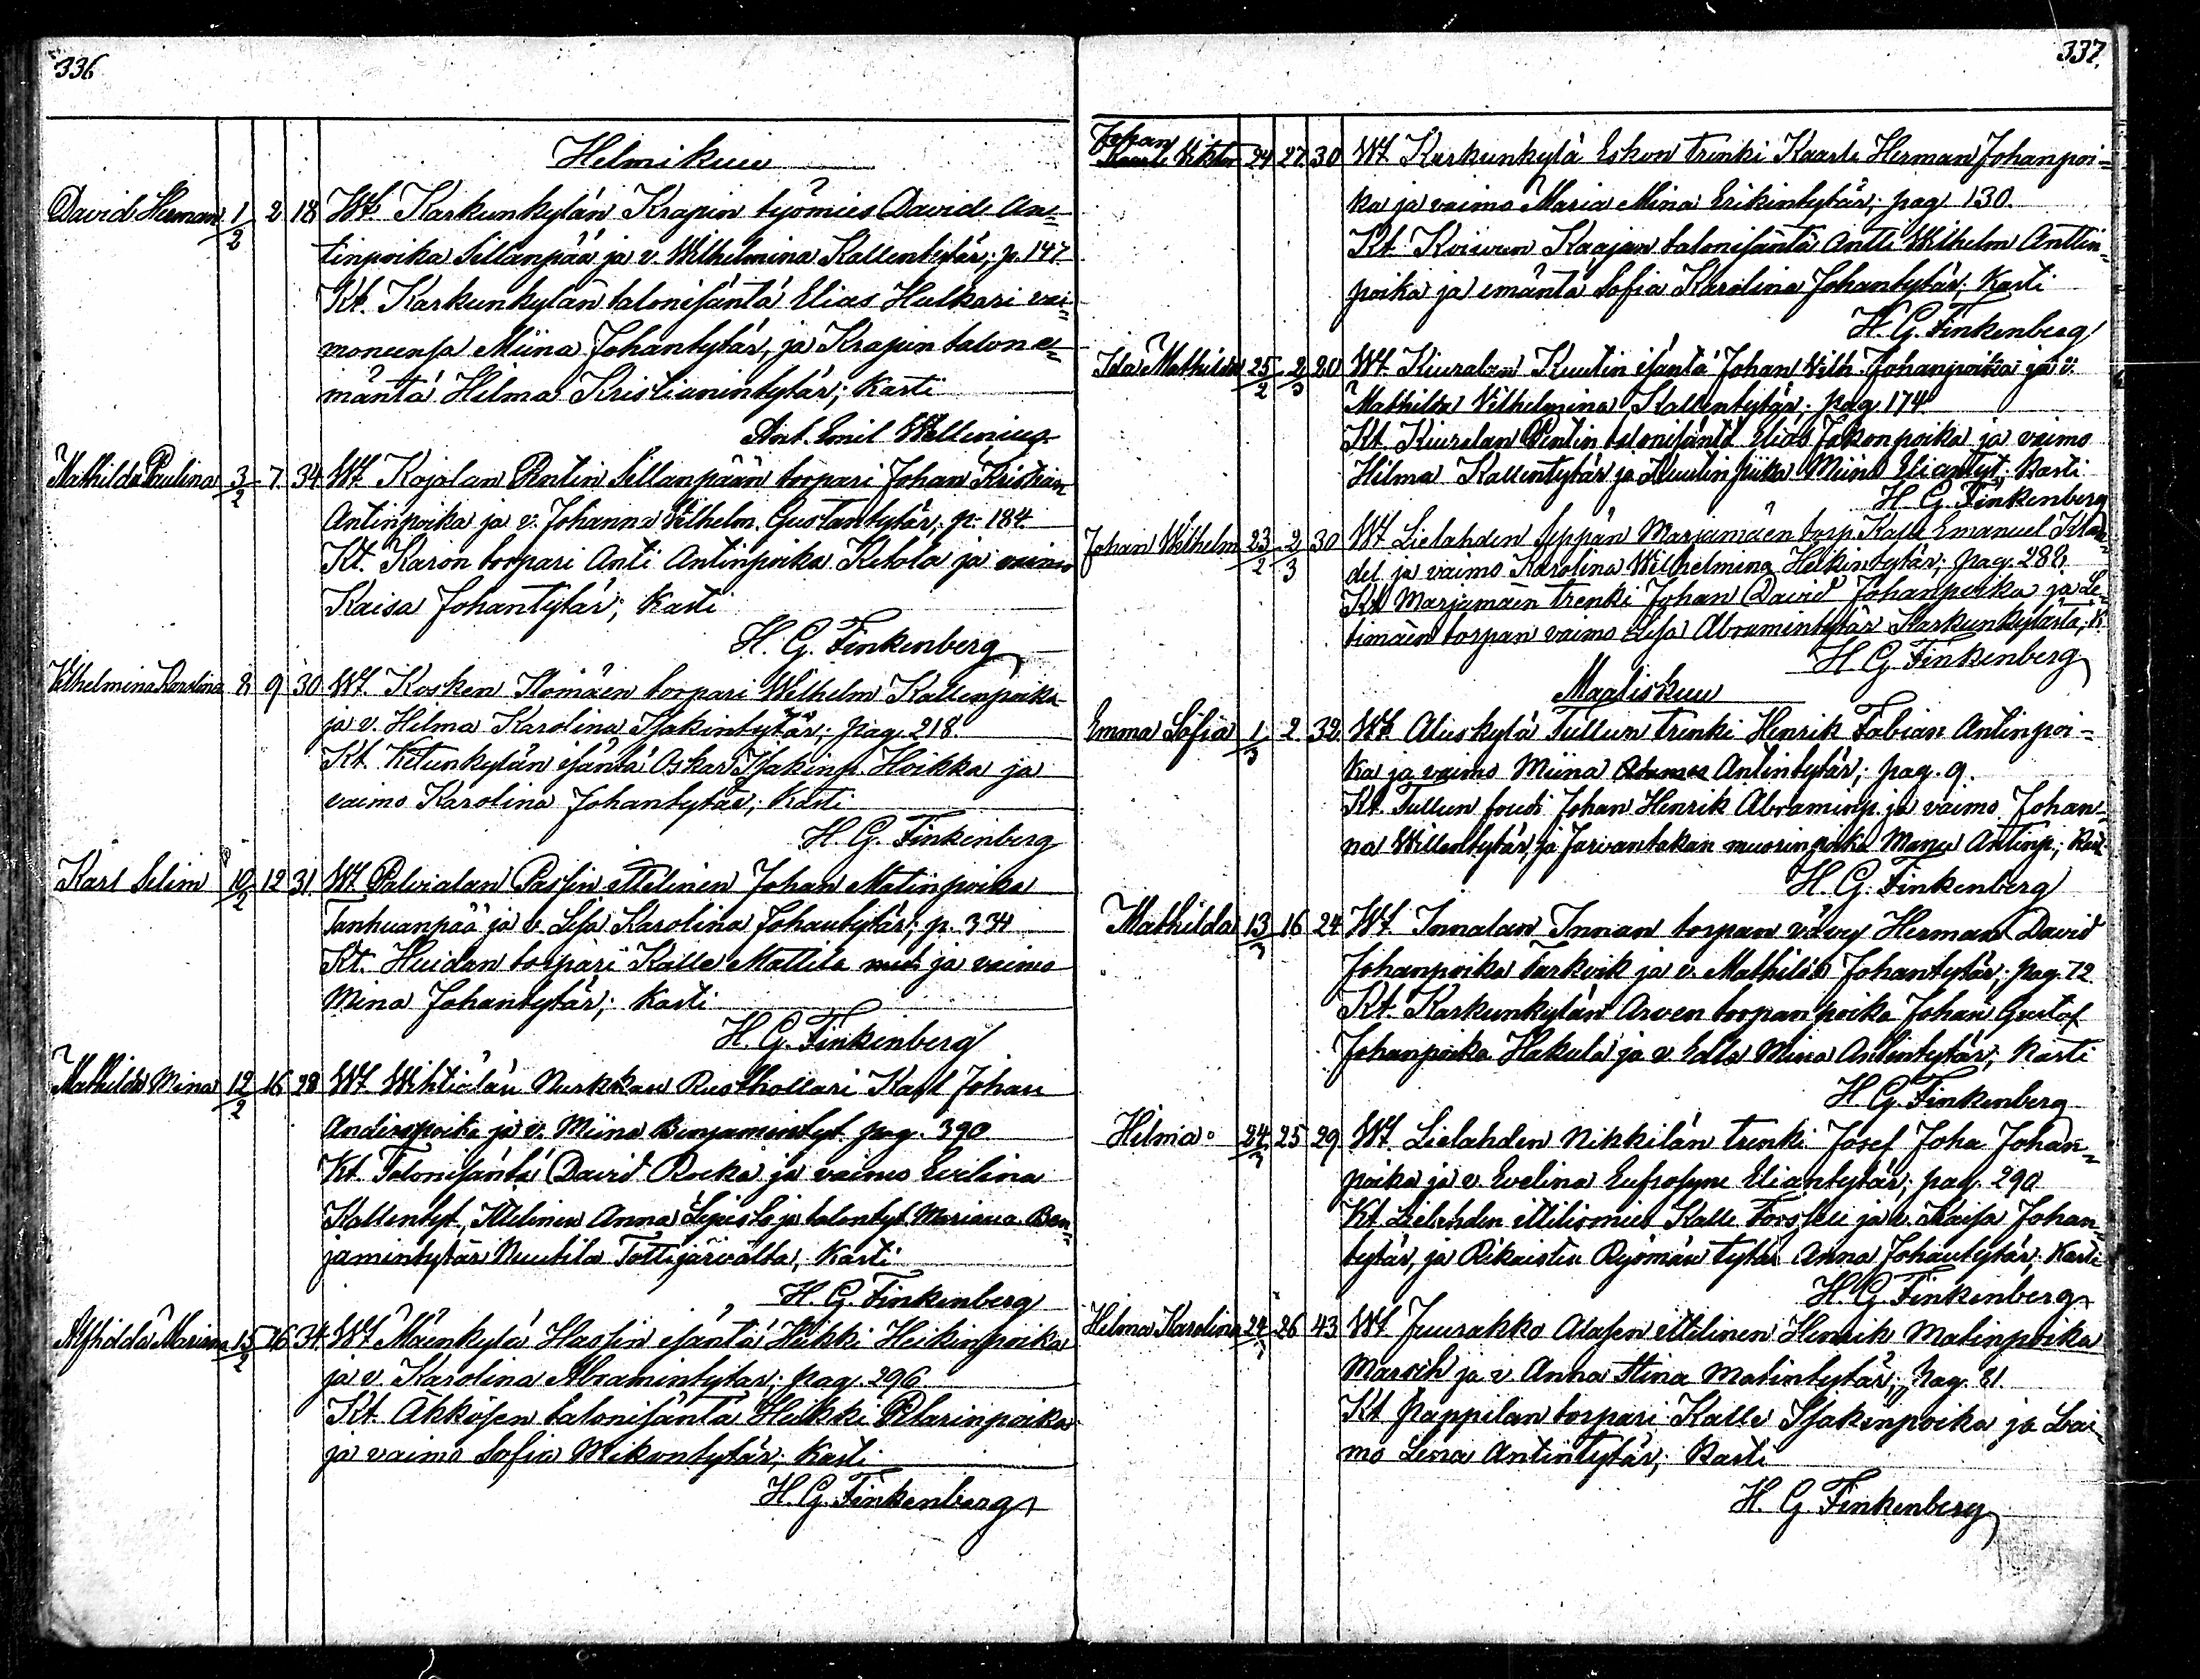 336
Helmikuu
David Herman 1/2 2 18 Wt. Karkunkylän Krapin työmies David An-
tinpoika Sillanpää ja v. Wilhelmina Kallentytär; p. 147
Kt. Karkunkylän talonisäntä Elias Hulkari vai-
moneensa Miina Johantytär, ja Krapin talon e-
mäntä Hilma Kristianintytär; Kasti
Ant. Emil Wellenius
Mathilda Paulina 3/2 7 34 Wt Kojolan Pentin Sillanpään torpari Johan Kristian
Antinpoika ja v. Johanna Vilhelm. Gustantytär, p. 184
Kt. Karon torpari Anti Antinpoika Ketola ja vaimo
Kaisa Johantytär; Kasti
H. G. Finkenberg
Vilhelmina Karolina 8 9 30 Wt. Kosken Ilomäen torpari Wilhelm Kallenpoika
ja v. Hilma Karolina Isakintytär; pag. 218.
Kt. Ketunkylän isäntä Oskar Isakinp. Hoikka ja
vaimo Karolina Johantytär; Kasti
H. G. Finkenberg
Karl Selim 10/2 12 31. Wt Palvialan Passin ittelinen Johan Matinpoika
Tanhuanpää ja v. Lisa Karolina Johantytär; p. 334
Kt. Huidan torpari Kalle Mattila ja vaimo
Mina Johantytär; Kasti
H. G. Finkenberg
Mathilda Mina 12/2 16 28 Wt Wihtiälän Nurkkan Rusthollari Karl Johan
Anderspoika ja v. Miina Benjamintyt. pag. 390
Kt. Talonisäntä David Rocka ja vaimo Evelina
Kallentyt, Ittelinen Anna Lepistö ja talontyt. Mariana Ben-
jamintytär Nuutila Tottijärvältä, Kasti
H. G. Finkenberg
Alfhilda Mariana 15/2 16 34. Wt Mäenkylä Hassin isäntä Heikki Heikinpoika
ja v. Karolina Abramintytar; pag. 296
Kt. Äkkösen talonisäntä Heikki Pelarinpoika
ja vaimo Sofia Mikontytär; Kasti
H. G. Finkenberg
337.
Johan
Kaarle Viktor 24 27 30 Wt. Karkunkylä Eskon trenki Kaarle Herman Johanpoi-
ka ja vaimo Maria Mina Erikintytär; pag 130.
Kt. Koivun Kaajan talonisäntä Antti Wilhelm Anttin-
poika ja emäntä Sofia Karolina Johantytär; Kasti
H. G. Finkenberg
Ida Mathilda 25/2 2/3 20 Wt. Kiuralan Kuutin isäntä Johan Vilh. Johanpoika ja v.
Mathilda Vilhelmina Kallentytär; pag 174
Kt. Kiuralan Pentin talonisäntä Elias Jakonpoika ja vaimo
Hilma Kallentytär ja Kuutin piika Miina Eliantyt; Kasti
H. G. Finkenberg
Johan Wilhelm 23/2 2/3 30 Wt Lielahden Seppän Marjamäen torp. Kalle Emanuel
del ja vaimo Karolina Wilhelmina Heikintytär; pag. 288.
Kt Marjamäen trenki Johan David Johanpoika ja Le-
timäen torpan vaimo Lisa Abramintytär Karkunkylästä; K.
H. G. Finkenberg
Maaliskuu
Emma Sofia 1/3 2 32. Wt. Aluskylä Tullun trenki Henrik Fabian Antinpoi-
ka ja vaimo Miina Antintytär; pag. 9.
Kt. Tullun Johan Henrik Abraminp. ja vaimo Johan-
na Willentytär, ja Jarvantakan muorinpoika Manu Antinp.; Kast.
H. G. Finkenberg
Mathilda 13/3 16 24 Wt Innalan Innan torpan vävy Herman David
Johanpoika Tarkvik ja v. Mathilda Johantytär; pag. 72
Kt. Karkunkylän Arven torpan poika Johan Gustaf
Johanpoika Hakula ja v Edla Mina Antintytär; Kasti
H. G. Finkenberg
Hilma 24/3 25 29 Wt. Lielahden Nikkilän trenki Josef Joha Johan-
poika ja v. Evelina Eufrosyne Eliantytär; pag. 290
Kt Lielahden ittilismies Kalle Forssell ja v. Kaisa Johan-
tytär, ja Rikaisten Ryömän tytär Anna Johantytär; Kasti
H. G. Finkenberg
Hilma Karolina 24/3 26 43 Wt Juurakko Alasen ittelinen Henrik Matinpoika
Marvik ja v Anna Stina Matintytär; pag. 81
Kt Pappilan torpari Kalle Isakinpoika ja vai-
mo Lena Antintytär; Kasti
H. G. Finkenberg